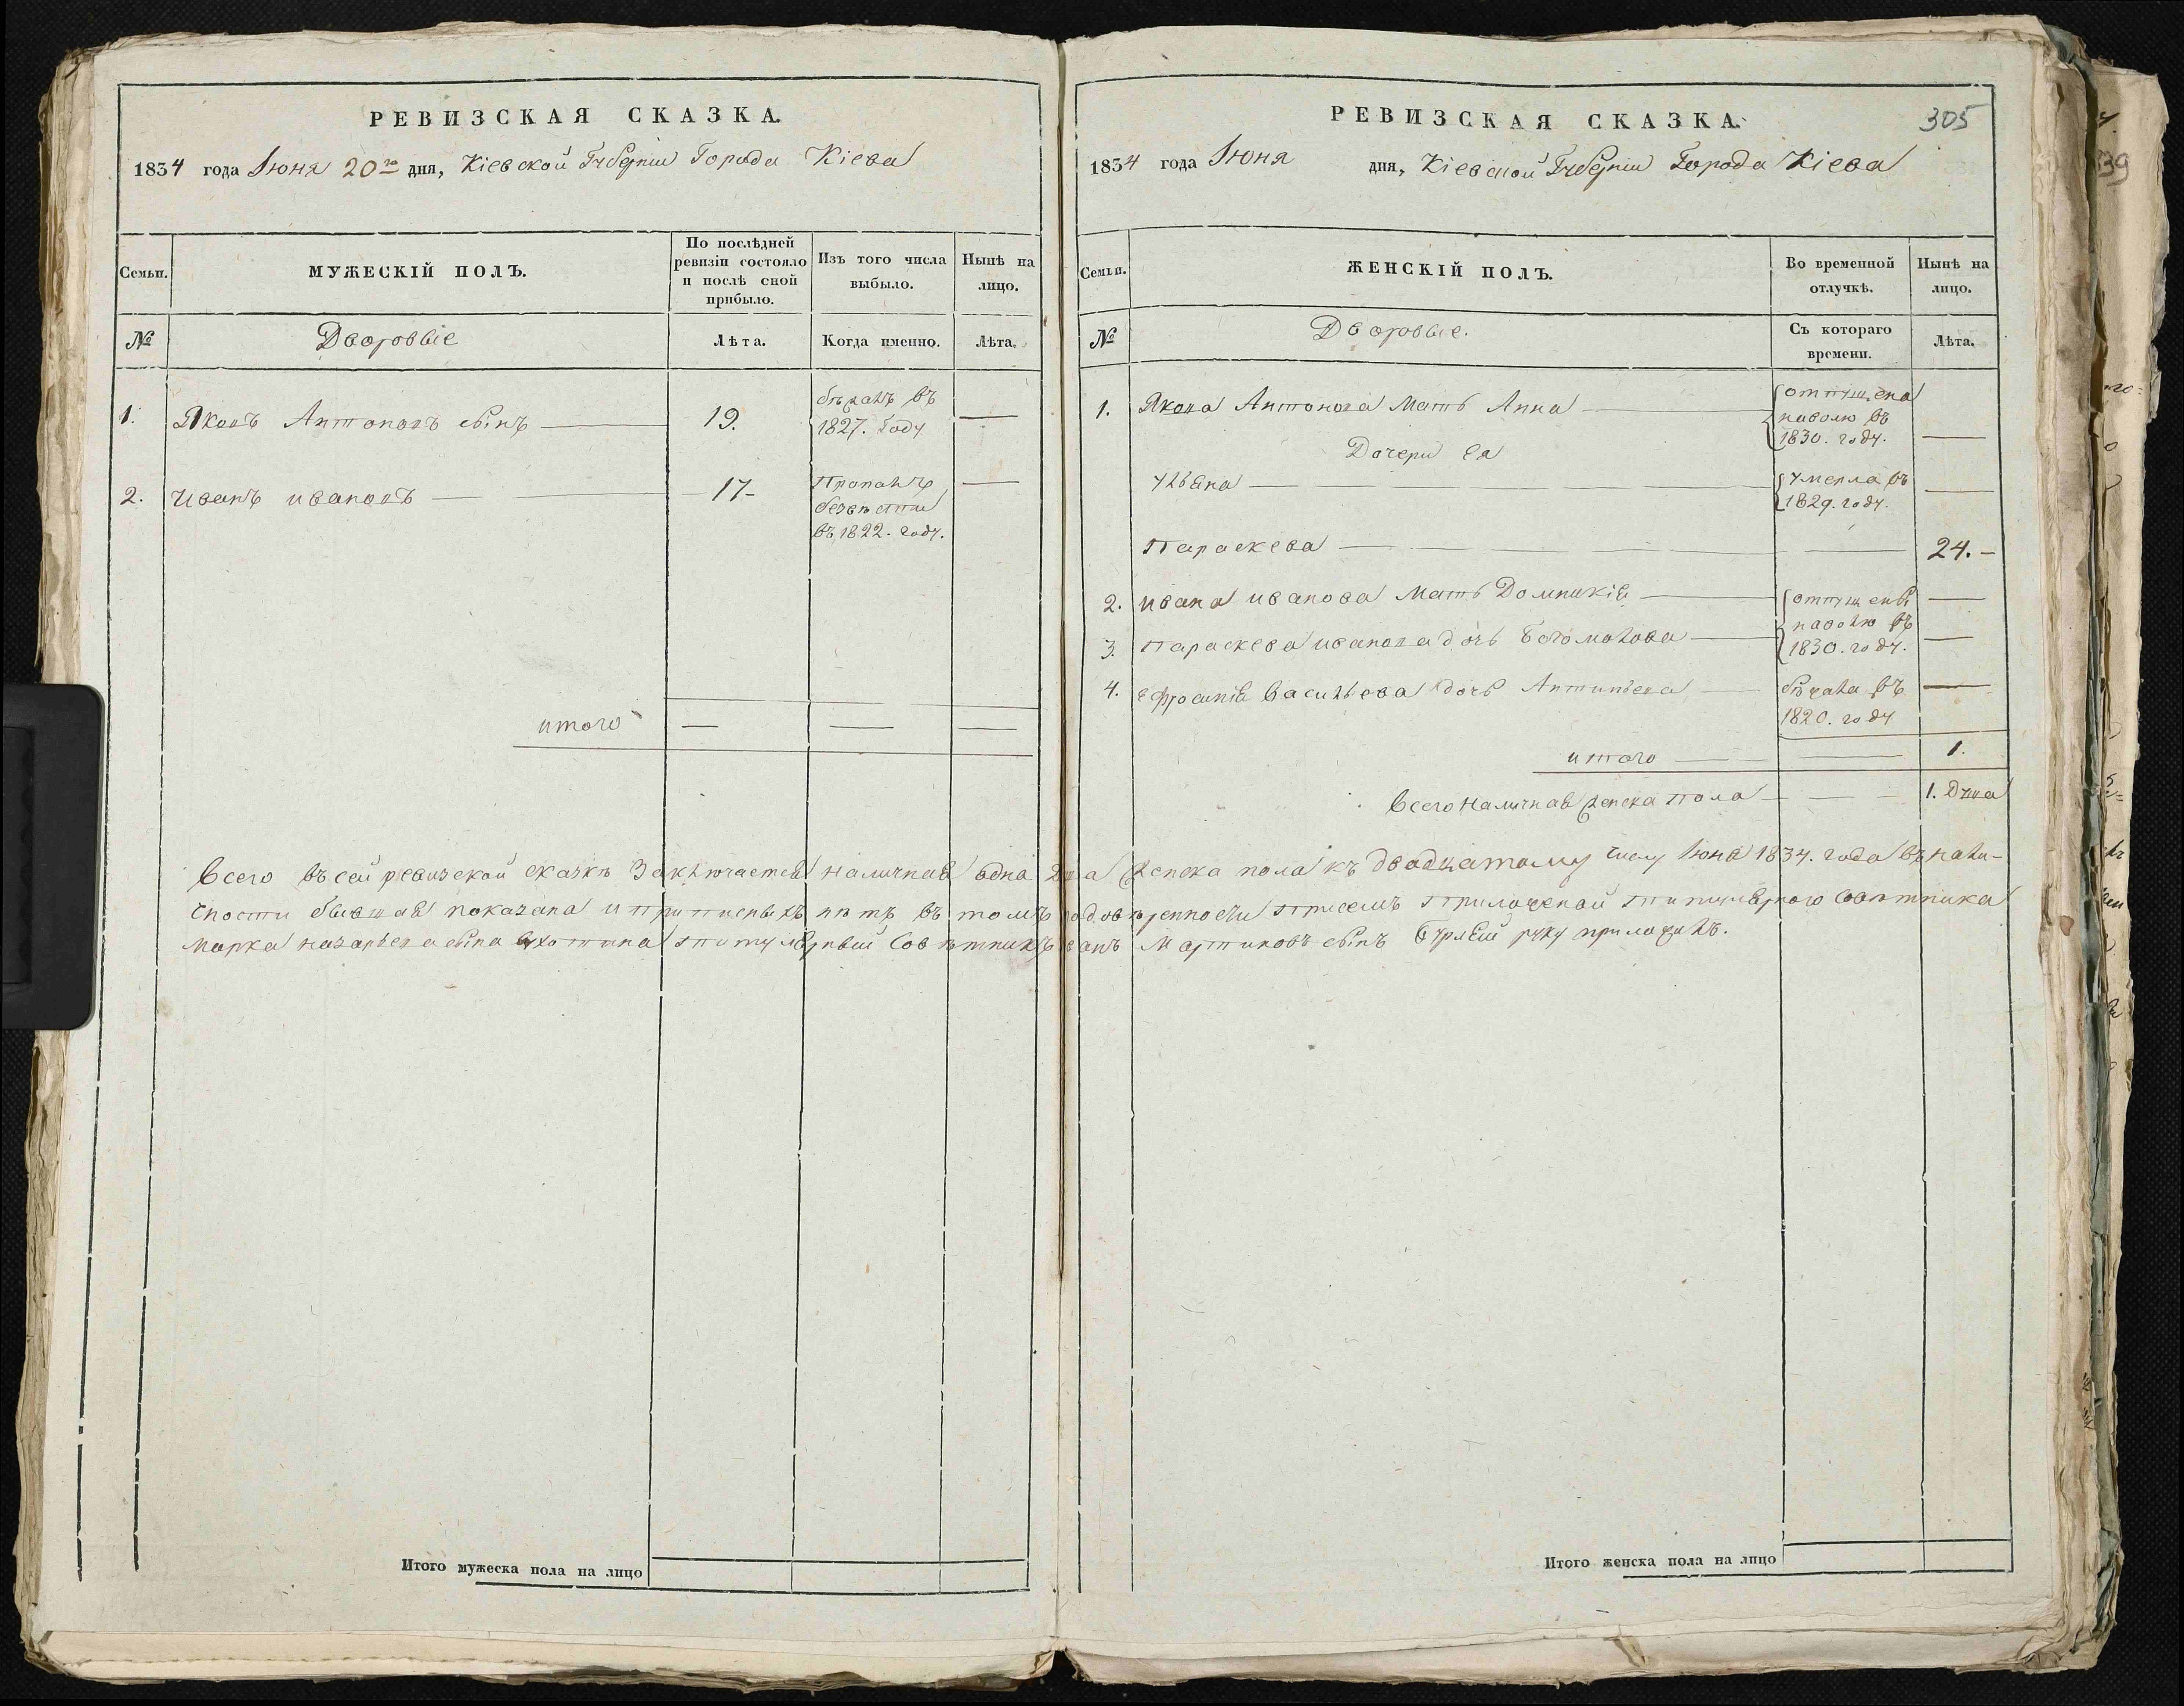 РЕВИЗСКАЯ СКАЗКА.
1834 года Июня 20го дня, Кіевской Губерніи Города Кіева
Семьи. МУЖЕСКІЙ ПОЛЪ. По послѣдней ревизіи состояло и послѣ оной прибыло. Изъ того числа выбыло. Нынѣ на лицо.
№ Дворовые Лѣта. Когда именно. Лѣта.
1. Яковъ Антоновъ сынъ 19. бѣжалъ въ
1827. Году
2. Иванъ ивановъ 17 Пропалъ
безвѣсти
въ 1822. году.
итого
РЕВИЗСКАЯ СКАЗКА. 305
1834 года Июня дня, Кіевской Губерніи Города Кіева
Семьи. ЖЕНСКІЙ ПОЛЪ. Во временной отлучкѣ. Нынѣ на лицо.
№ Дворовые. Съ котораго времени. Лѣта.
1. Якова Антонова Мать Анна отпущена
наволю въ
1830. году.
Дочери ея
Ульяна умерла въ
1829. году.
Параскева 24.
2. ивана иванова Мать Домникія отпущены
наволю въ
3. Параскева иванова дочь Богомолова 1830. году.
4. ефросинія васильева дочь Антипьева бѣжала въ
1820. году
итого 1.
Всего наличная женска пола 1. Душа
Всего въ сей ревизской сказкѣ Заключается наличная одна Душа женска пола къ двадцатому числу Июня 1834. года въ нали-
чности бывшая показана и прописныхъ нѣтъ въ томъ по довѣренности присемъ приложеной титулярнаго Совѣтника
Марка назарьева сына титулярный Совѣтникъ иванъ Мартиновъ сынъ руку приложилъ.
Итого мужеска пола на лицо
Итого женска пола на лицо